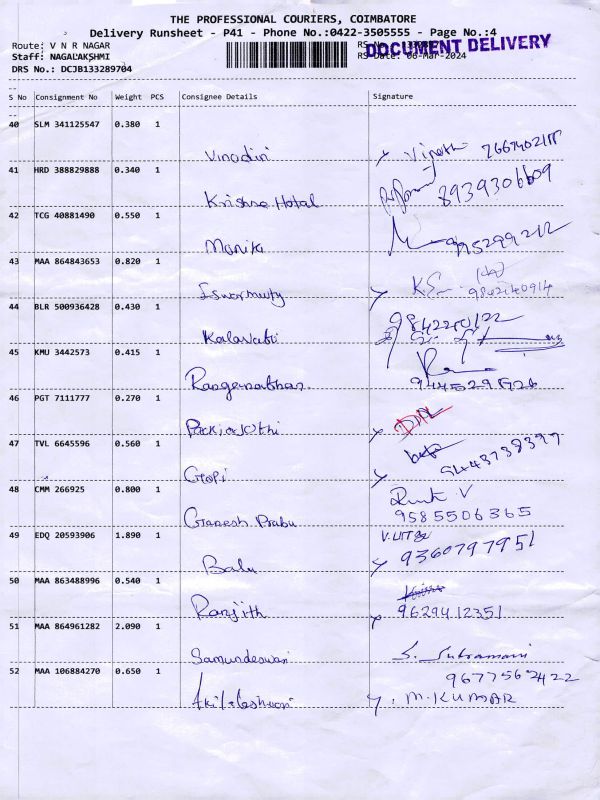 THE PROFESSIONAL COURIERS, COIMBATORE
Delivery Runsheet - P41 - Phone No.:0422-3505555 - Page No.:4
Route: V N R NAGAR
Staff: NAGALAKSHMI
DRS No.: DCJB133289704
DOCUMENT DELIVERY
RS Date: 06-Mar-2024
S No Consignment No Weight PCS Consignee Details Signature
40 SLM 341125547 0.380 1
Vinodini
41 HRD 388829888 0.340 1
Krishna Hotal 8939306609
42 TCG 40881490 0.550 1
Monika
43 MAA 864843653 0.820 1
Iswormurty 9842140914
44 BLR 500936428 0.430 1
Kalavati 9842240122
45 KMU 3442573 0.415 1
Ranganathan
46 PGT 7111777 0.270 1
47 TVL 6645596 0.560 1
Gopi
48 CMM 266925 0.800 1
Ganesh Prabu 9585506365
49 EDQ 20593906 1.890 1
Balu 9360797951
50 MAA 863488996 0.540 1
Ranjith 9629412351
51 MAA 864961282 2.090 1
Samundeswari S. Subramani
9677562422
52 MAA 106884270 0.650 1
M.KUMAR